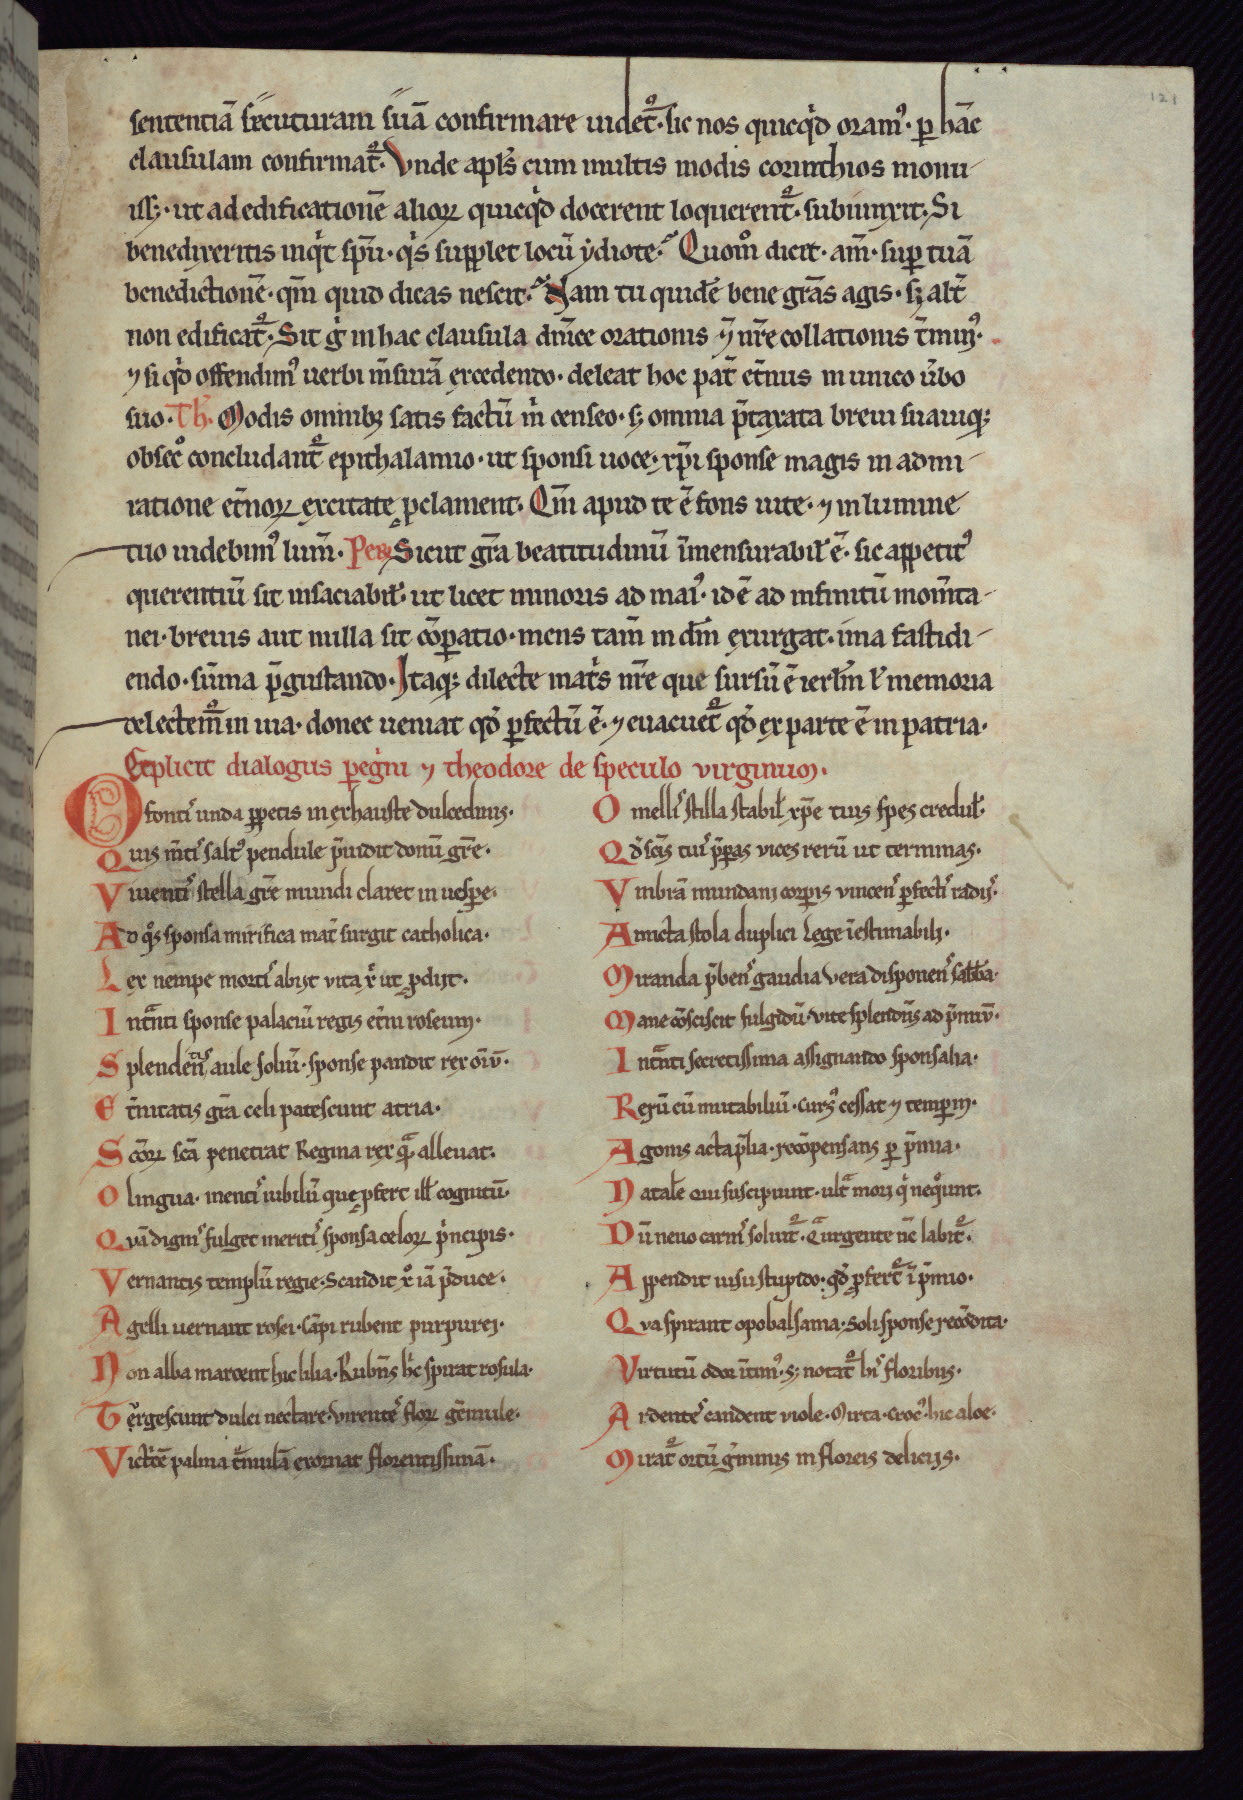 121
sententiā secuturam suā confirmare uidet᷒· sic nos quicq̇d oram᷒· ꝑ hāc
clausulam confirmat᷒· Vnde apls̄ cum multis modis corinthios monu-
iss&· ut ad edificationē alioꝝ quicq̇d docerent loquerent᷒· subiunxit· Si
benedixeritis inqt spm̄· qs suppleṫ locū ydiote· Quom̊ dicit· am̄· suꝑ tuā
benedictionē· qm̄ quid dicas nescit· Nam tu quidē bene grās agis· sꝫ alt̄
non edificat᷒· Sit g̊ in hac clausula dn̄ice orationis ⁊ nr̄e collationis t̄min᷒·
⁊ si qd offendim᷒ uerbi m̄surā excedendo· deleat hoc pat̄ et̄nus in unico ūbo
suo· Th̄· Modis omnibꝫ satis factū m̊ censeo· sꝫ omnia p̄taxata breui suauiqꝫ
obsec̊ concludant᷒ epithalamio· ut sponsi uoce· xp̄i sponse magis in admi-
ratione et̄noꝝ excitate ꝓclament· Qm̄ apud te ē fons uite· ⁊ in lumine
tuo uidebim᷒ lum̄· Per· Sicut grā beatitudinū īmensurabił ē· sic appetit᷒
querentiū sit insaciabił· ut licet minoris ad mai᷒· id ē ad infinitū mom̄ta-
nei· breuis aut nulla sit cōꝑatio· mens tam̄ in dm̄ exurgat· ima fastidi-
endo· sūma p̄gustando· Itaqꝫ dilecte matis nr̄e que sursū ē ierlm̄ ł memoria
delectem᷒ in uia· donec ueniat qd̄ ꝑfectū ē· ⁊ euacuet᷒ qd̄ ex parte ē in patria·
Explicit dialogus ꝑeg̊ni ⁊ theodore de speculo virginum·
O fontis unda ꝑpetis inexhauste dulcedinis·
Quis m̄tis salt᷒ pendule p̄uidit donū grē·
Viuentis stella grē mundi claret in uesꝑe·
Ad q̊s sponsa mirifica mat̄ surgit catholica·
Lex nempe mortis abijt vita x̊ ut ꝓdijt·
Intrāti sponse palaciū regis et̄ni roseum·
Splendentis aule soliū· sponse pandit rex oīū·
Et̄nitatis grā celi patescunt atria·
Scōꝝ scā penetrat Regina rex quā alleuat·
O lingua· mentis iubilū que ꝓfert ill̄ cognitū·
Quā dignis fulget meritis sponsa celoꝝ p̊ncipis·
Vernantis templū regie· Scandit x̊ iā p̄duce·
Agelli uernant rosei· Cāpi rubent purpurei·
Non alba marcent hic lilia· Rubēs hic spirat rosula·
Tergescunt dulci nectare· virentes floꝝ gēmule·
Victicē palma t̄mulā exornat florentissimā·
O mellis stilla stabil xp̄e tuis spes credul·
Qd scīs tuis p̄paras vices rerū ut terminas·
Vmbrā mundani corꝑis vincens ꝑfectis radijs·
Amicta stola duplici Lege īestimabili·
Miranda p̄bens gaudia vera disponens sabb̄a·
Mane cōsciscit fulgidū· vite splendēs ad p̄miū·
Intrāti secretissima assignando sponsalia·
Rerū cū mutabiliū· curs᷒ cessat ⁊ temꝑū·
Agonis acta p̄lia· recōpensans ꝑ p̄mia·
Natale qui suscipiunt· ultrā mori q̊ neq̊unt·
Dū neuo carnis soluit᷒· Qua urgente nc̄ labit᷒·
Appendit uisu stupido· qd̄ ꝓfert᷒ ī p̄mio·
Qua spirant opobalsama· soli sponse recōdita·
Virtutū odor ītim᷒· sꝫ notat᷒ his floribus·
Ardentes candent viole· Mirta· croc᷒· hic aloe·
Mirat᷒ ortū g̊minis in floreis delicijs·